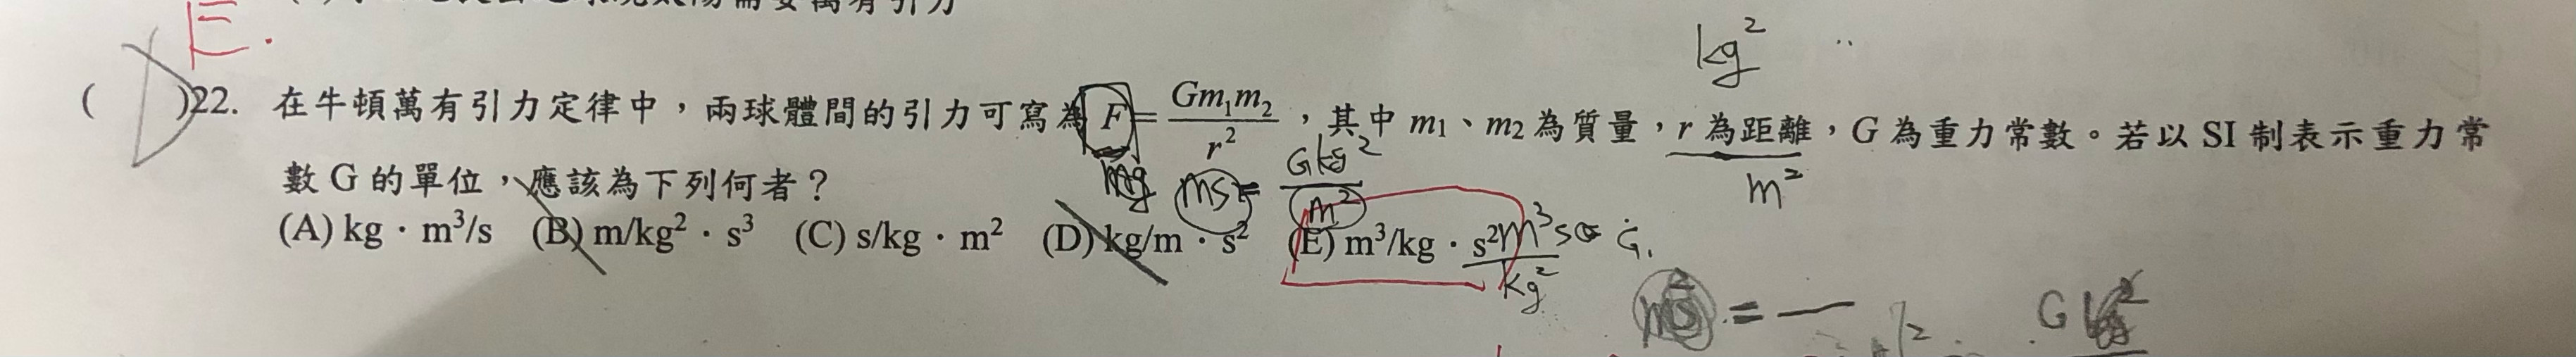 萬有引力
E.
kg²
( D )22. 在牛頓萬有引力定律中，兩球體間的引力可寫為 F = Gm₁m₂ / r²，其中 m₁、m₂ 為質量，r 為距離，G 為重力常數。若以 SI 制表示重力常
數 G 的單位，應該為下列何者？
mg ms = Gkg² / m²
m²
(A) kg · m³/s (B) m/kg² · s³ (C) s/kg · m² (D) kg/m · s² (E) m³/kg · s²
m³s / kg² G.
= —
G